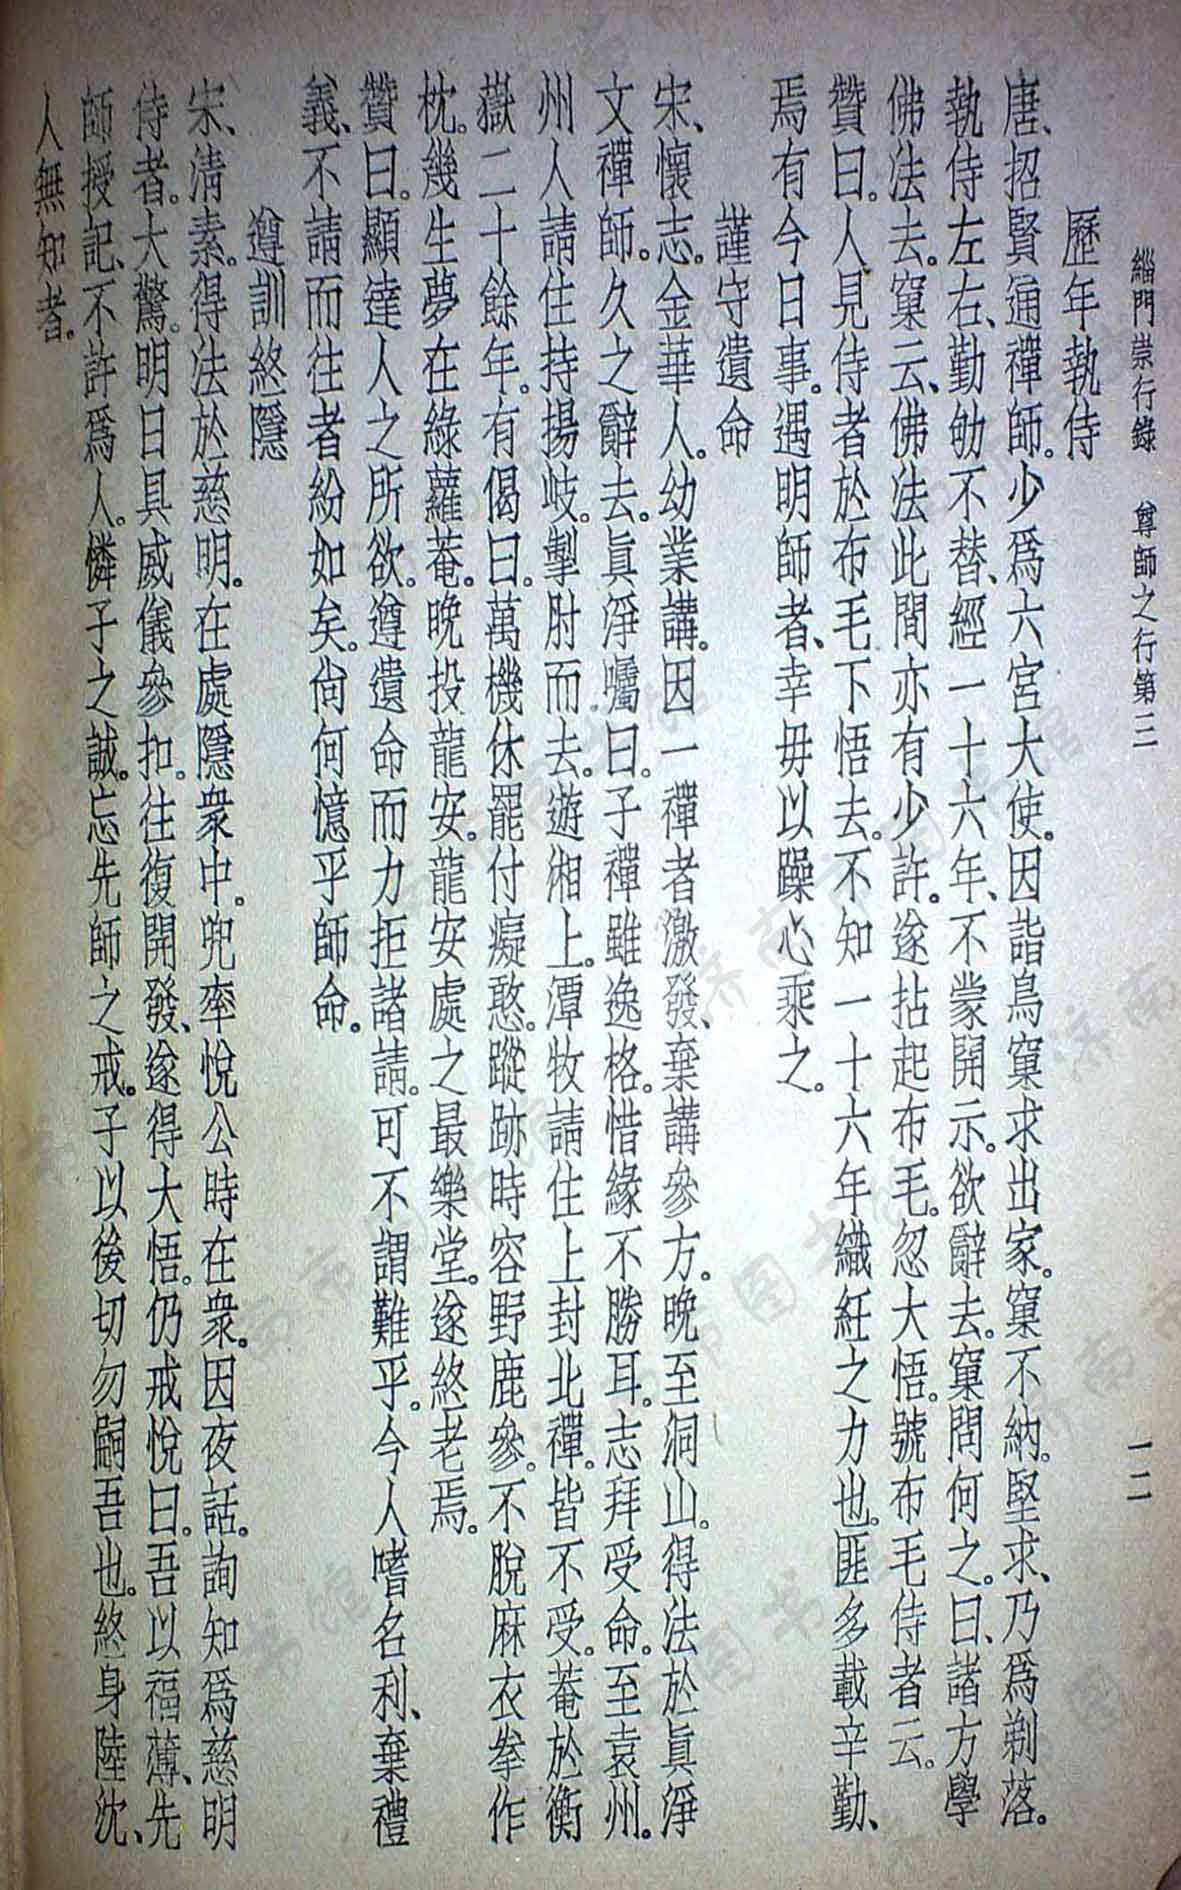 緇門崇行錄　尊師之行第三　一二
歷年執侍
唐、招賢通禪師。少爲六宮大使。因詣鳥窠求出家。窠不納。堅求、乃爲剃落。
執侍左右、勤劬不替、經一十六年、不蒙開示。欲辭去。窠問何之。曰、諸方學
佛法去。窠云、佛法此間亦有少許。遂拈起布毛。忽大悟。號布毛侍者云。
贊曰。人見侍者於布毛下悟去。不知一十六年織紝之力也。匪多載辛勤、
焉有今日事。遇明師者、幸毋以躁心乘之。
謹守遺命
宋、懷志。金華人。幼業講。因一禪者激發、棄講參方。晚至洞山。得法於眞淨
文禪師。久之辭去。眞淨囑曰。子禪雖逸格。惜緣不勝耳。志拜受命。至袁州。
州人請住持揚岐。掣肘而去。遊湘上。潭牧請住上封北禪。皆不受。菴於衡
嶽二十餘年。有偈曰。萬機休罷付癡憨。蹤跡時容野鹿參。不脫麻衣拳作
枕。幾生夢在綠蘿菴。晚投龍安。龍安處之最樂堂。遂終老焉。
贊曰。顯達人之所欲。遵遺命而力拒諸請。可不謂難乎。今人嗜名利、棄禮
義、不請而往者紛如矣。尙何憶乎師命。
遵訓終隱
宋、淸素。得法於慈明。在處隱衆中。兜率悅公時在衆。因夜話。詢知爲慈明
侍者。大驚。明日具威儀參扣。往復開發、遂得大悟。仍戒悅曰。吾以福薄、先
師授記、不許爲人。憐子之誠。忘先師之戒。子以後切勿嗣吾也。終身陸沈、
人無知者。